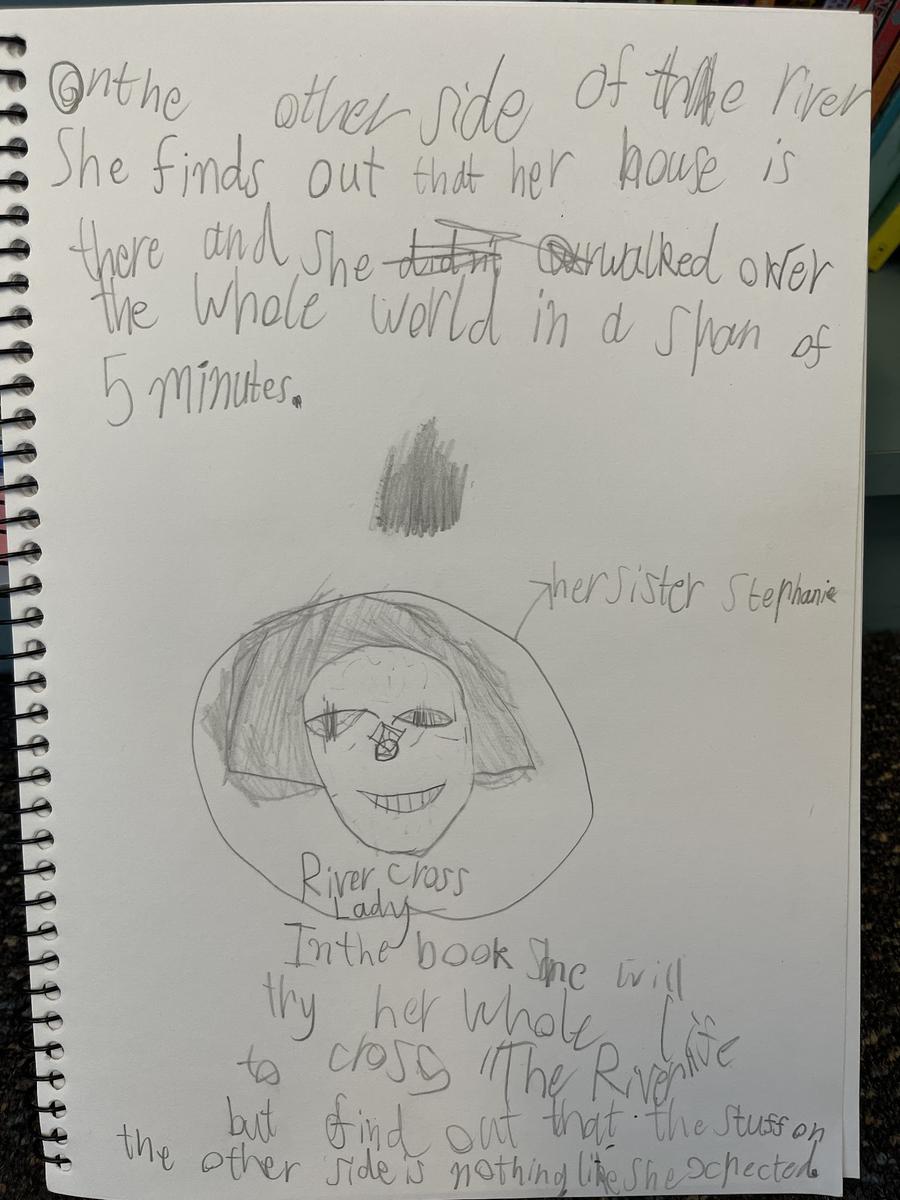 Onthe other side of the river
She finds out that her house is
there and she didn't walked over
the whole world in a span of
5 minutes.
her sister Stephanie
River Cross
Lady
In the book She will
try her whole life
to cross "The River"
but find out that the stuff on
the other side is nothing like she expected.